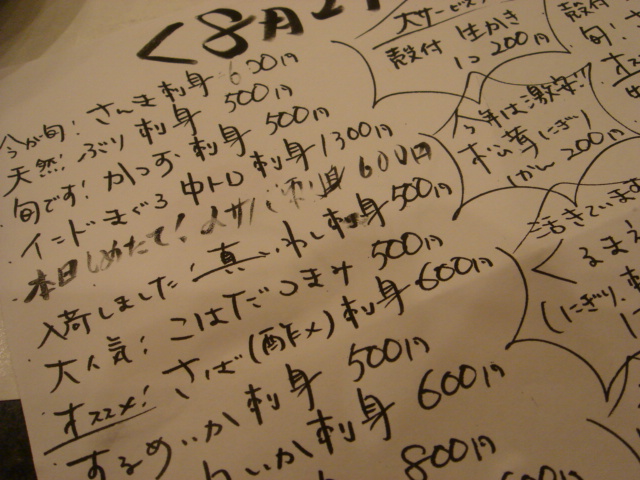 <8月2
今が旬! さんま刺身 600円
天然! ぶり刺身 500円
旬です! かつお刺身 500円
インドまぐろ中トロ刺身 1300円
本日しめたて! 〆サバ刺身 600円
入荷しました! 真いわし刺身 500円
大人気! こはだつまみ 500円
オススメ! さば(酢〆)刺身 600円
するめいか刺身 500円
いか刺身 600円
800円
大サービス
殻付 生かき
1コ 200円
今年は激安!!
松茸にぎり
1かん 200円
殻付
旬!
オス
活きています
くるまえ
(にぎり、刺